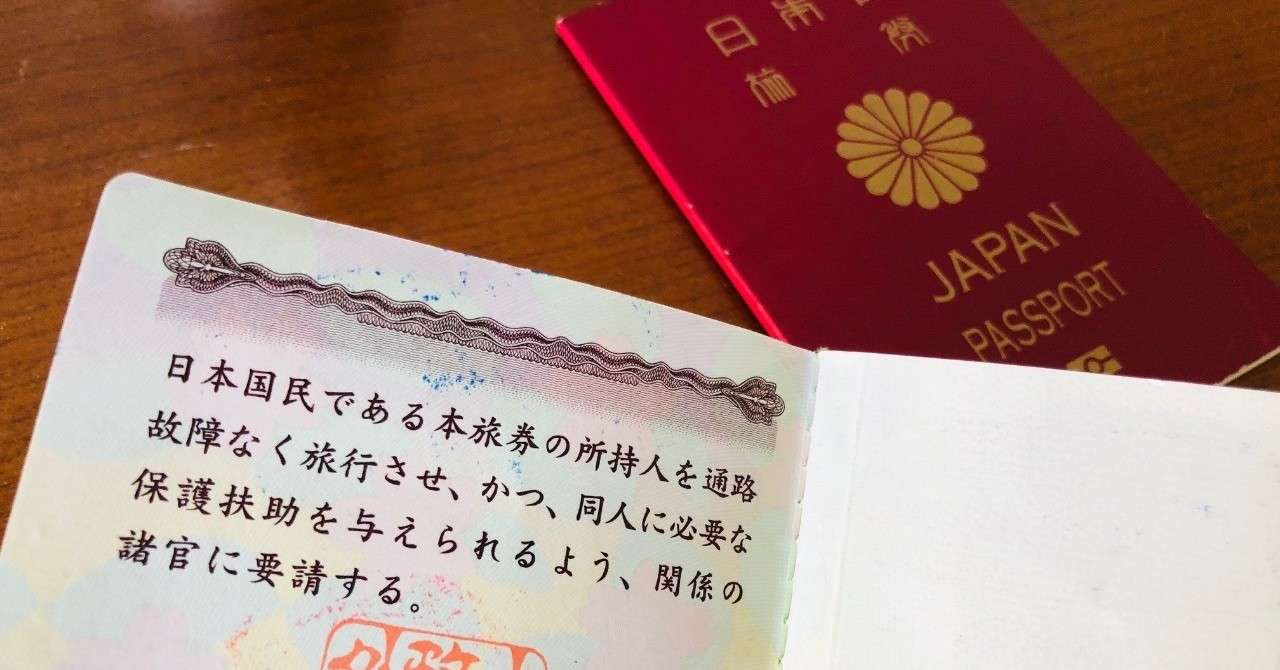 JAPAN
PASSPORT
日本国民である本旅券の所持人を通路
故障なく旅行させ、かつ、同人に必要な
保護扶助を与えられるよう、関係の
諸官に要請する。